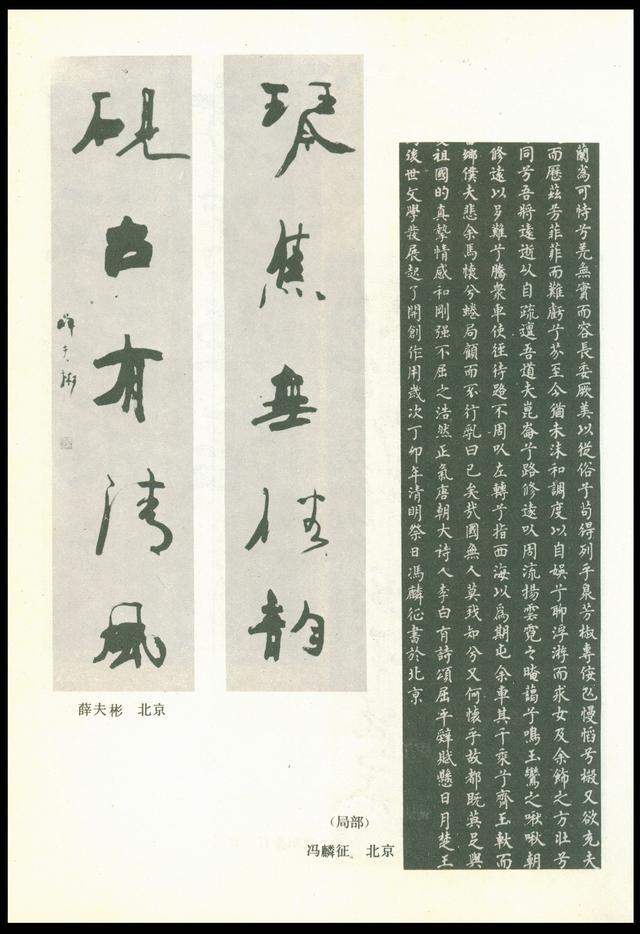 蘭爲可恃兮羌無實而容長委厥美以從俗兮苟得列乎衆芳椒專佞以慢慆兮樧又欲充夫
而歷茲芳菲菲而難虧兮芬至今猶未沫和調度以自娛兮聊浮游而求女及余飾之方壯兮
同兮吾將遠逝以自疏邅吾道夫崑崙兮路修遠以周流揚雲霓之晻藹兮鳴玉鸞之啾啾朝
修遠以多難兮騰衆車使徑待路不周以左轉兮指西海以爲期屯余車其千乘兮齊玉軑而
鄉僕夫悲余馬懷兮蜷局顧而不行亂曰已矣哉國無人莫我知兮又何懷乎故都既莫足與
祖國的真摯情感和剛强不屈之浩然正氣唐朝大诗人李白有詩頌屈平辭賦懸日月楚王
後世文學發展起了開創作用歲次丁卯年清明祭日馮麟征書於北京
琴焦無俗韵
硯古有清風
薛夫彬
薛夫彬 北京
（局部）
冯麟征 北京